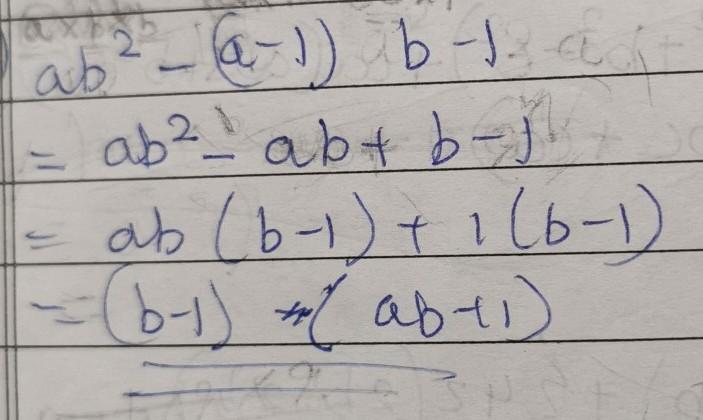 a×b×b
ab² - (a-1) b - 1
= ab² - ab + b - 1
= ab (b-1) + 1 (b-1)
= (b-1) (ab+1)